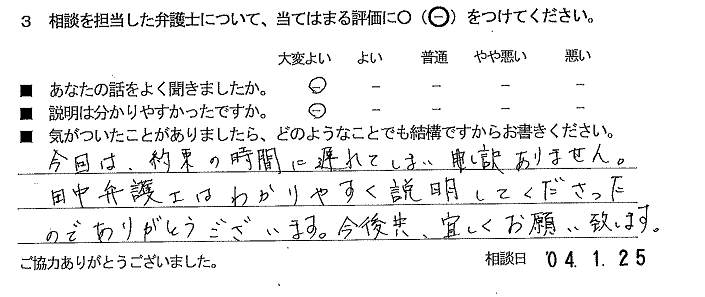 3 相談を担当した弁護士について、当てはまる評価に○（⊖）をつけてください。
大変よい よい 普通 やや悪い 悪い
■ あなたの話をよく聞きましたか。 ⊖ － － － －
■ 説明は分かりやすかったですか。 ⊖ － － － －
■ 気がついたことがありましたら、どのようなことでも結構ですからお書きください。
今回は、約束の時間に遅れてしまい申し訳ありません。
田中弁護士はわかりやすく説明してくださった
のでありがとうございます。今後共、宜しくお願い致します。
ご協力ありがとうございました。 相談日 '04.1.25